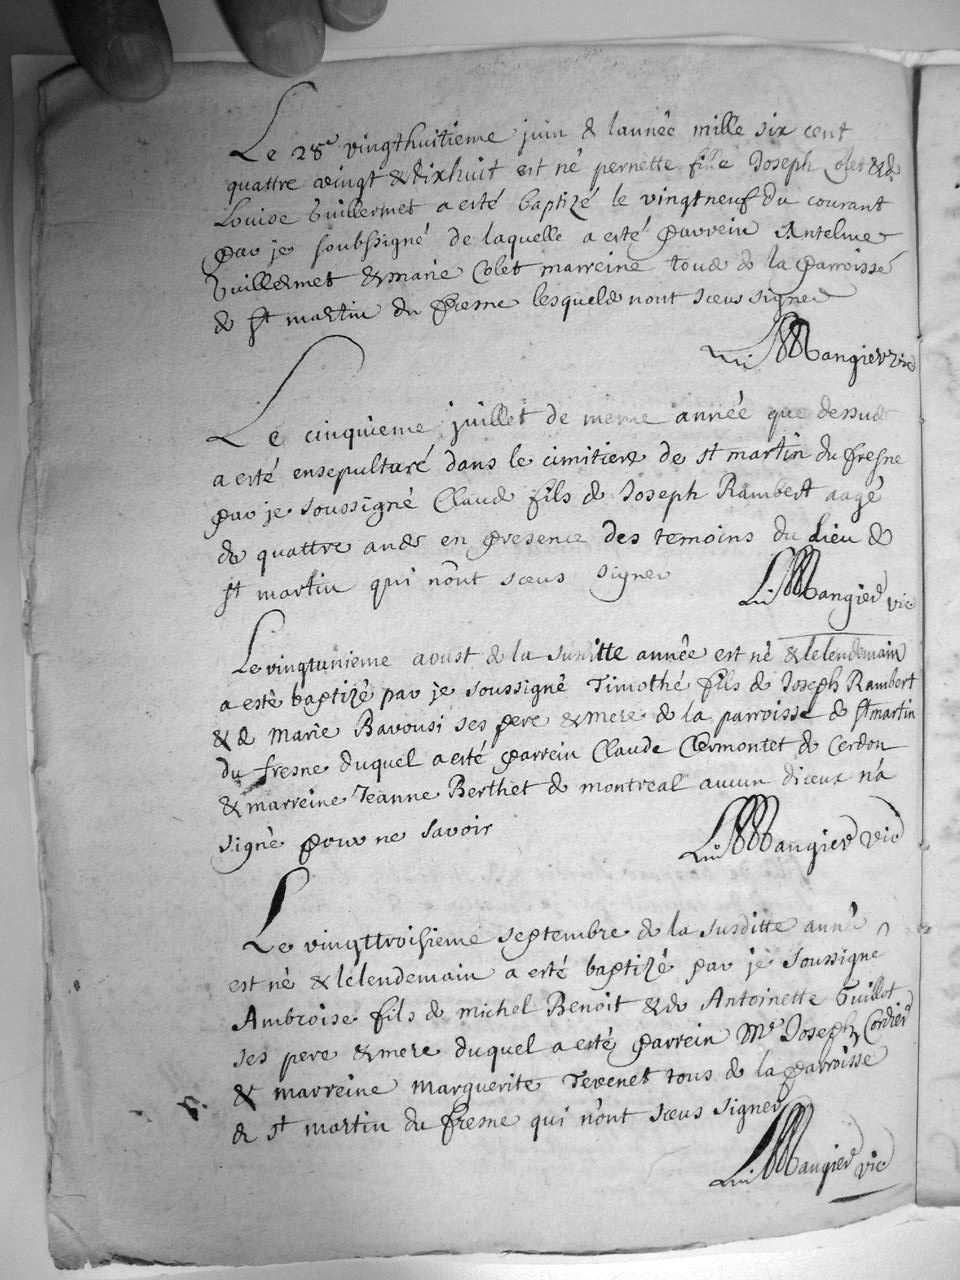 Le 28e vingthuitieme juin de lannée mille six cent
quattre vingt & dixhuit est né pernette fille Joseph Colet & de
Louise Guillermet a esté baptizé le vingtneuf du courant
par je soubssigné de laquelle a esté parrein Antelme
Guillermet & marie Colet marreine tous de la parroisse
de st martin du fresne lesquels nont sceus signer
Mangier vic
Le cinquieme juillet de meme année que dessus
a esté ensepulturé dans le cimitiere de st martin du fresne
par je soussigné Claude fils de Joseph Rambert aagé
de quattre ands en presence des temoins du Lieu de
st martin qui nont sceus signer
Mangier vic
Le vingtunieme aoust de la susditte année est né & lelendemain
a esté baptizé par je soussigné Timothé fils de Joseph Rambert
& de Marie Bavousi ses pere & mere de la parroisse de st martin
du fresne duquel a esté parrein Claude Clermontet de Cerdon
& marreine Jeanne Berthet de montreal aucun diceux n'a
signé pour ne savoir
Mangier vic
Le vingttroisieme septembre de la susditte anné
est né & lelendemain a esté baptizé par je soussigné
Ambroise fils de michel Benoit & de Antoinette Guillot
ses pere & mere duquel a esté parrein Mr Joseph Cordier
& marreine marguerite Tevenet tous de la parroisse
de st martin du fresne qui n'ont sceus signer
Mangier vic